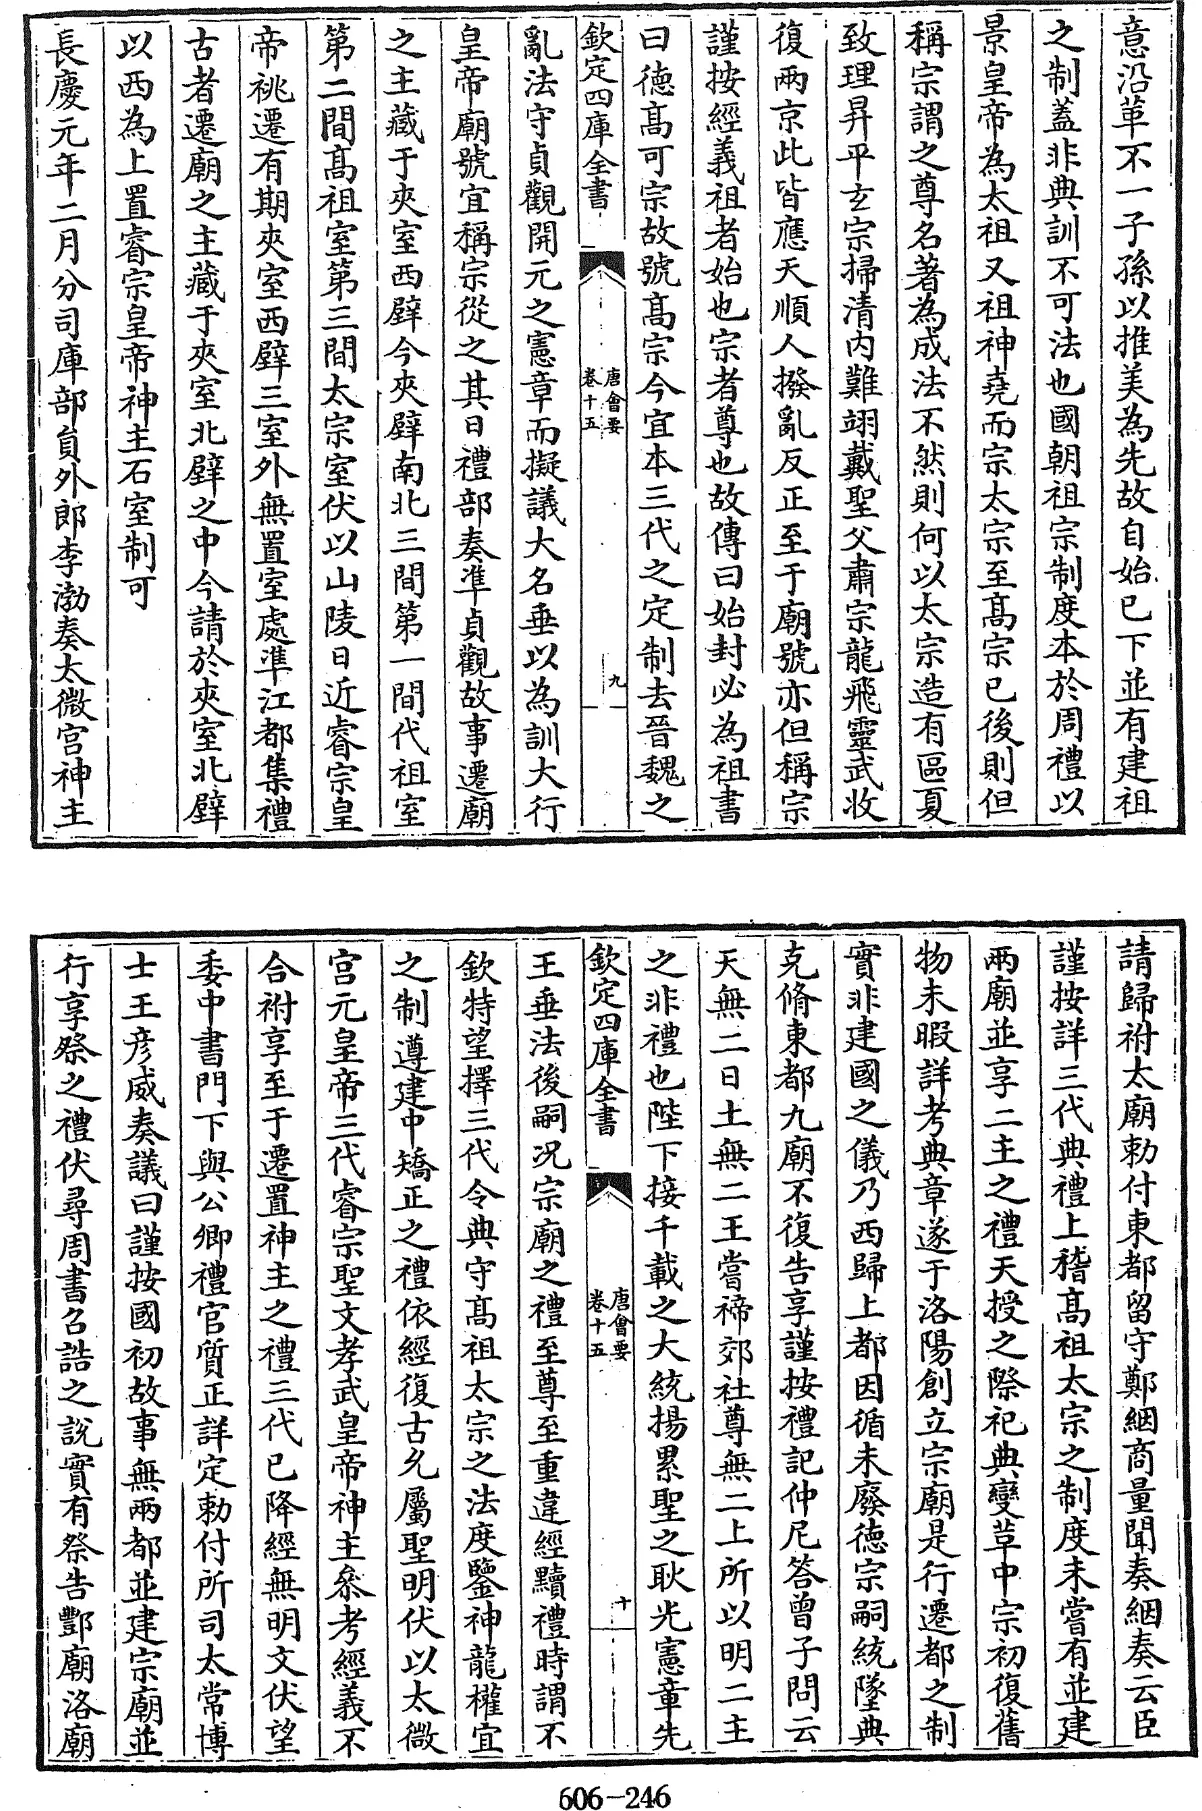 意沿革不一子孫以推美為先故自始已下並有建祖
之制蓋非典訓不可法也國朝祖宗制度本於周禮以
景皇帝為太祖又祖神堯而宗太宗至髙宗已後則但
稱宗謂之尊名著為成法不然則何以太宗造有區夏
致理昇平玄宗掃清内難翊戴聖父肅宗龍飛靈武收
復兩京此皆應天順人撥亂反正至于廟號亦但稱宗
謹按經義祖者始也宗者尊也故傳曰始封必為祖書
曰德髙可宗故號髙宗今宜本三代之定制去晉魏之
欽定四庫全書
唐會要
卷十五
九
亂法守貞觀開元之憲章而擬議大名垂以為訓大行
皇帝廟號宜稱宗從之其日禮部奏準貞觀故事遷廟
之主藏于夾室西壁今夾壁南北三間第一間代祖室
第二間髙祖室第三間太宗室伏以山陵日近睿宗皇
帝祧遷有期夾室西壁三室外無置室處準江都集禮
古者遷廟之主藏于夾室北壁之中今請於夾室北壁
以西為上置睿宗皇帝神主石室制可
長慶元年二月分司庫部員外郎李渤奏太微宮神主
請歸祔太廟勅付東都留守鄭絪商量聞奏絪奏云臣
謹按詳三代典禮上稽髙祖太宗之制度未嘗有並建
兩廟並享二主之禮天授之際祀典變革中宗初復舊
物未暇詳考典章遂于洛陽創立宗廟是行遷都之制
實非建國之儀乃西歸上都因循未廢德宗嗣統墜典
克脩東都九廟不復告享謹按禮記仲尼答曾子問云
天無二日土無二王嘗禘郊社尊無二上所以明二主
之非禮也陛下接千載之大統揚累聖之耿光憲章先
欽定四庫全書
唐會要
卷十五
十
王垂法後嗣况宗廟之禮至尊至重違經黷禮時謂不
欽特望擇三代令典守髙祖太宗之法度鑒神龍權宜
之制遵建中矯正之禮依經復古允屬聖明伏以太微
宮元皇帝三代睿宗聖文孝武皇帝神主叅考經義不
合祔享至于遷置神主之禮三代已降經無明文伏望
委中書門下與公卿禮官質正詳定勅付所司太常博
士王彦威奏議曰謹按國初故事無兩都並建宗廟並
行享祭之禮伏尋周書召誥之說實有祭告酆廟洛廟
606-246